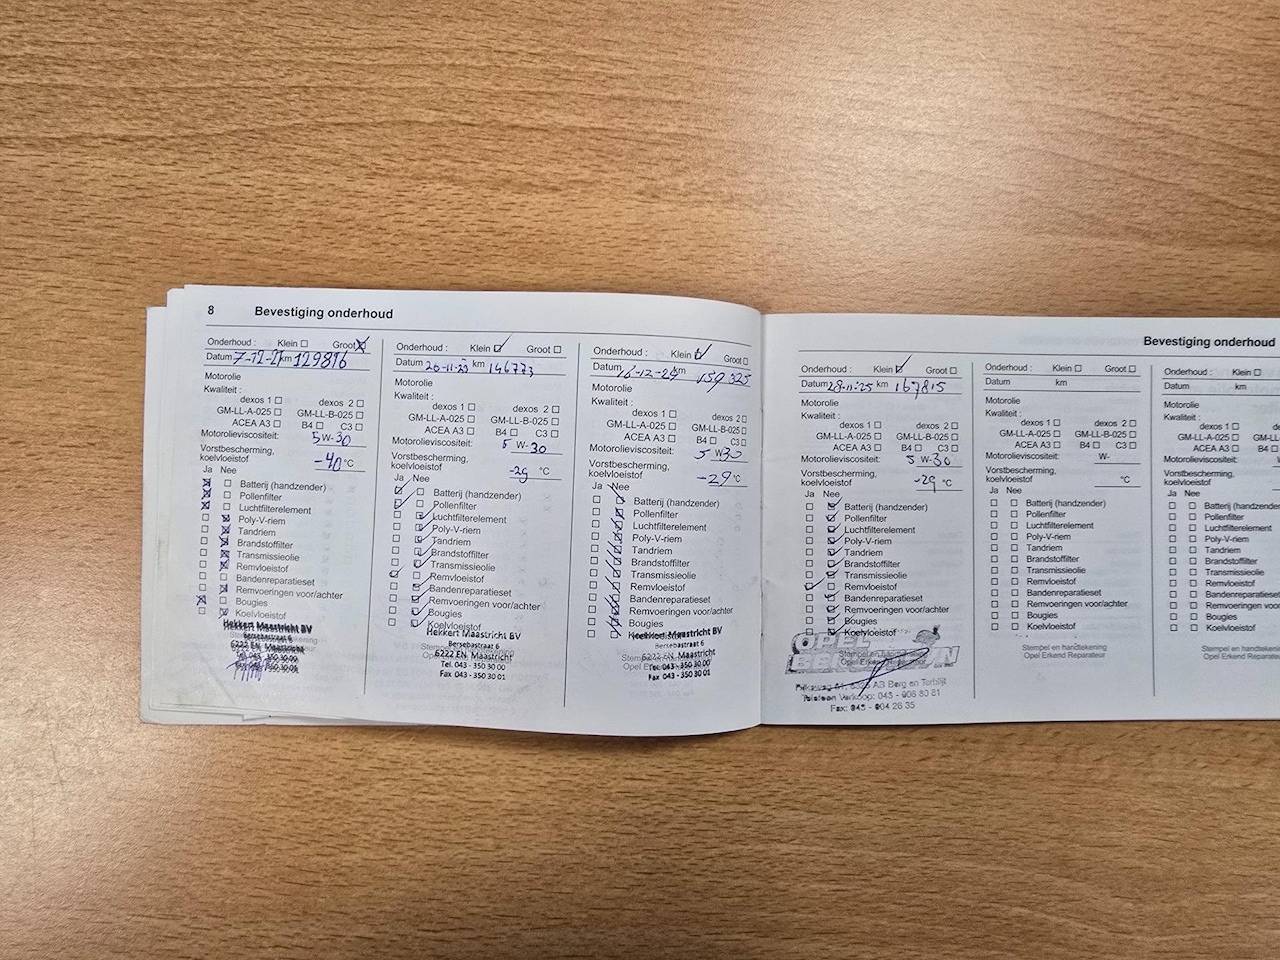 8 Bevestiging onderhoud
Onderhoud : Klein ☐ Groot ☒
Datum 7-12-21 km 129816
Motorolie
Kwaliteit :
dexos 1 ☐ dexos 2 ☐
GM-LL-A-025 ☐ GM-LL-B-025 ☐
ACEA A3 ☐ B4 ☐ C3 ☐
Motorolieviscositeit: 5 W-30
Vorstbescherming,
koelvloeistof -40 °C
Ja Nee
Batterij (handzender)
Pollenfilter
Luchtfilterelement
Poly-V-riem
Tandriem
Brandstoffilter
Transmissieolie
Remvloeistof
Bandenreparatieset
Remvoeringen voor/achter
Bougies
Koelvloeistof
Hekkert Maastricht BV
Bersebastraat 6
6222 EN Maastricht
Tel. 043 - 350 30 00
Fax 043 - 350 30 01
Onderhoud : Klein ☑ Groot ☐
Datum 20-11-23 km 146773
Motorolie
Kwaliteit :
dexos 1 ☐ dexos 2 ☐
GM-LL-A-025 ☐ GM-LL-B-025 ☐
ACEA A3 ☐ B4 ☐ C3 ☐
Motorolieviscositeit: 5 W-30
Vorstbescherming,
koelvloeistof -29 °C
Ja Nee
Batterij (handzender)
Pollenfilter
Luchtfilterelement
Poly-V-riem
Tandriem
Brandstoffilter
Transmissieolie
Remvloeistof
Bandenreparatieset
Remvoeringen voor/achter
Bougies
Koelvloeistof
Hekkert Maastricht BV
Bersebastraat 6
6222 EN Maastricht
Tel. 043 - 350 30 00
Fax 043 - 350 30 01
Onderhoud : Klein ☑ Groot ☐
Datum 16-12-24 km 159 325
Motorolie
Kwaliteit :
dexos 1 ☐ dexos 2 ☐
GM-LL-A-025 ☐ GM-LL-B-025 ☐
ACEA A3 ☐ B4 ☐ C3 ☐
Motorolieviscositeit: 5 W30
Vorstbescherming,
koelvloeistof -29 °C
Ja Nee
Batterij (handzender)
Pollenfilter
Luchtfilterelement
Poly-V-riem
Tandriem
Brandstoffilter
Transmissieolie
Remvloeistof
Bandenreparatieset
Remvoeringen voor/achter
Bougies
Koelvloeistof
Hekkert Maastricht BV
Bersebastraat 6
6222 EN Maastricht
Tel. 043 - 350 30 00
Fax 043 - 350 30 01
Bevestiging onderhoud
Onderhoud : Klein ☑ Groot ☐
Datum 28-11-25 km 167815
Motorolie
Kwaliteit :
dexos 1 ☐ dexos 2 ☐
GM-LL-A-025 ☐ GM-LL-B-025 ☐
ACEA A3 ☐ B4 ☐ C3 ☐
Motorolieviscositeit: 5 W-30
Vorstbescherming,
koelvloeistof -29 °C
Ja Nee
Batterij (handzender)
Pollenfilter
Luchtfilterelement
Poly-V-riem
Tandriem
Brandstoffilter
Transmissieolie
Remvloeistof
Bandenreparatieset
Remvoeringen voor/achter
Bougies
Koelvloeistof
OPEL
Stempel en handtekening
Opel Erkend Reparateur
AG Berg en Terblijt
Telefoon Verkoop: 043 -
Fax: 043 - 604 26 35
Onderhoud : Klein ☐ Groot ☐
Datum km
Motorolie
Kwaliteit :
dexos 1 ☐ dexos 2 ☐
GM-LL-A-025 ☐ GM-LL-B-025 ☐
ACEA A3 ☐ B4 ☐ C3 ☐
Motorolieviscositeit: W-
Vorstbescherming,
koelvloeistof °C
Ja Nee
Batterij (handzender)
Pollenfilter
Luchtfilterelement
Poly-V-riem
Tandriem
Brandstoffilter
Transmissieolie
Remvloeistof
Bandenreparatieset
Remvoeringen voor/achter
Bougies
Koelvloeistof
Stempel en handtekening
Opel Erkend Reparateur
Onderhoud : Klein ☐
Datum km
Motorolie
Kwaliteit :
dexos 1 ☐
GM-LL-A-025 ☐
ACEA A3 ☐
Motorolieviscositeit:
Vorstbescherming,
koelvloeistof
Ja Nee
Batterij (handzender
Pollenfilter
Luchtfilterelement
Poly-V-riem
Tandriem
Brandstoffilter
Transmissieolie
Remvloeistof
Bandenreparatieset
Remvoeringen voor/
Bougies
Koelvloeistof
Stempel en handteke
Opel Erkend Repara